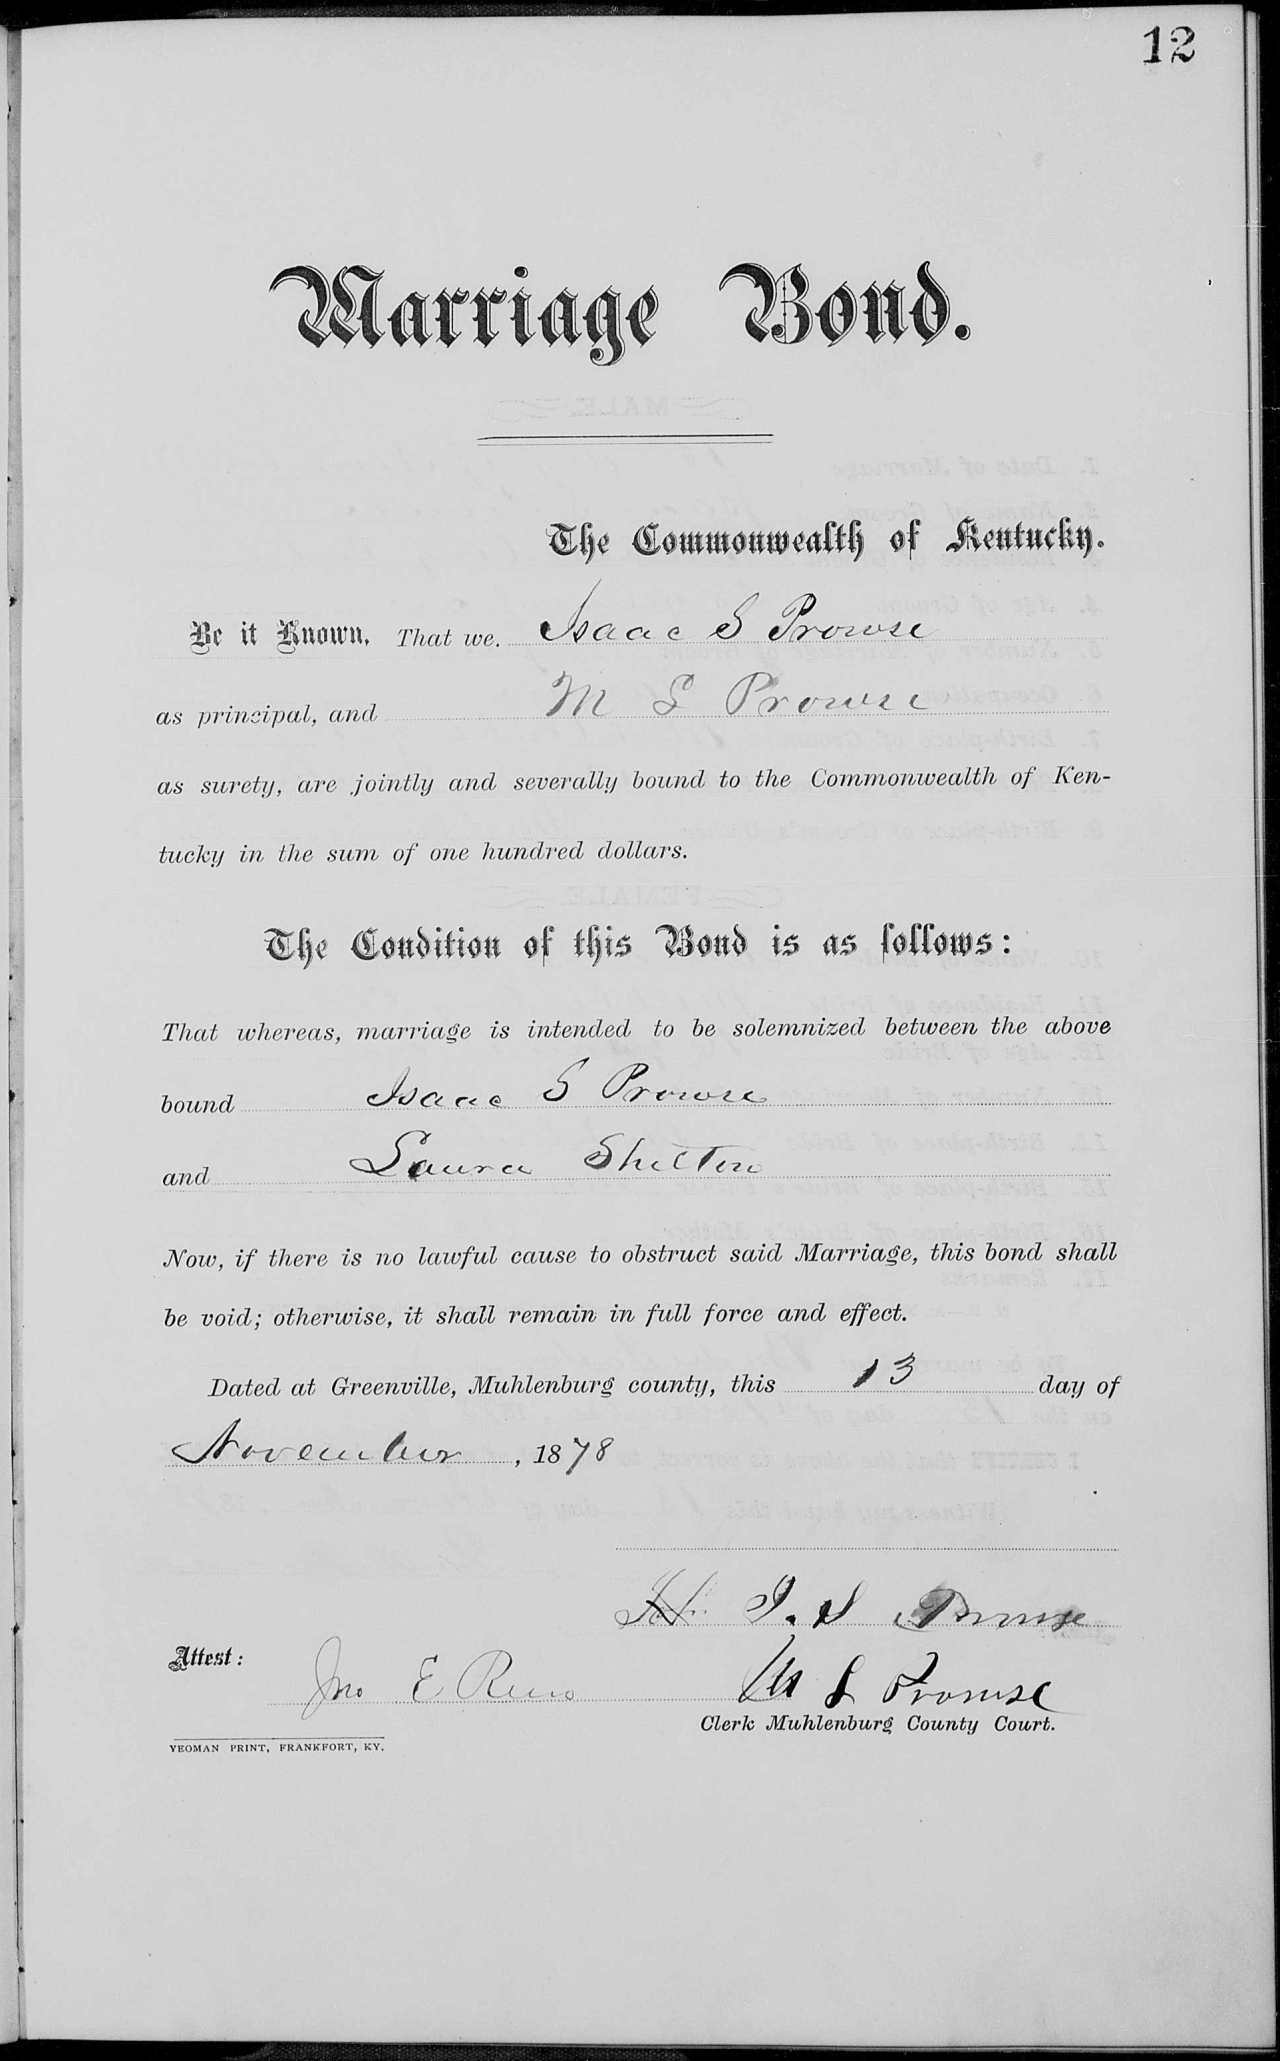 12
Marriage Bond.
The Commonwealth of Kentucky.
Be it Known, That we. Isaac S Prowse
as principal, and M L Prowse
as surety, are jointly and severally bound to the Commonwealth of Ken-
tucky in the sum of one hundred dollars.
The Condition of this Bond is as follows:
That whereas, marriage is intended to be solemnized between the above
bound Isaac S Prowse
and Laura Shelton
Now, if there is no lawful cause to obstruct said Marriage, this bond shall
be void; otherwise, it shall remain in full force and effect.
Dated at Greenville, Muhlenburg county, this 13 day of
November, 1878
I. S Prowse
Attest: Jno E Reno M L Prowse
Clerk Muhlenburg County Court.
YEOMAN PRINT, FRANKFORT, KY.